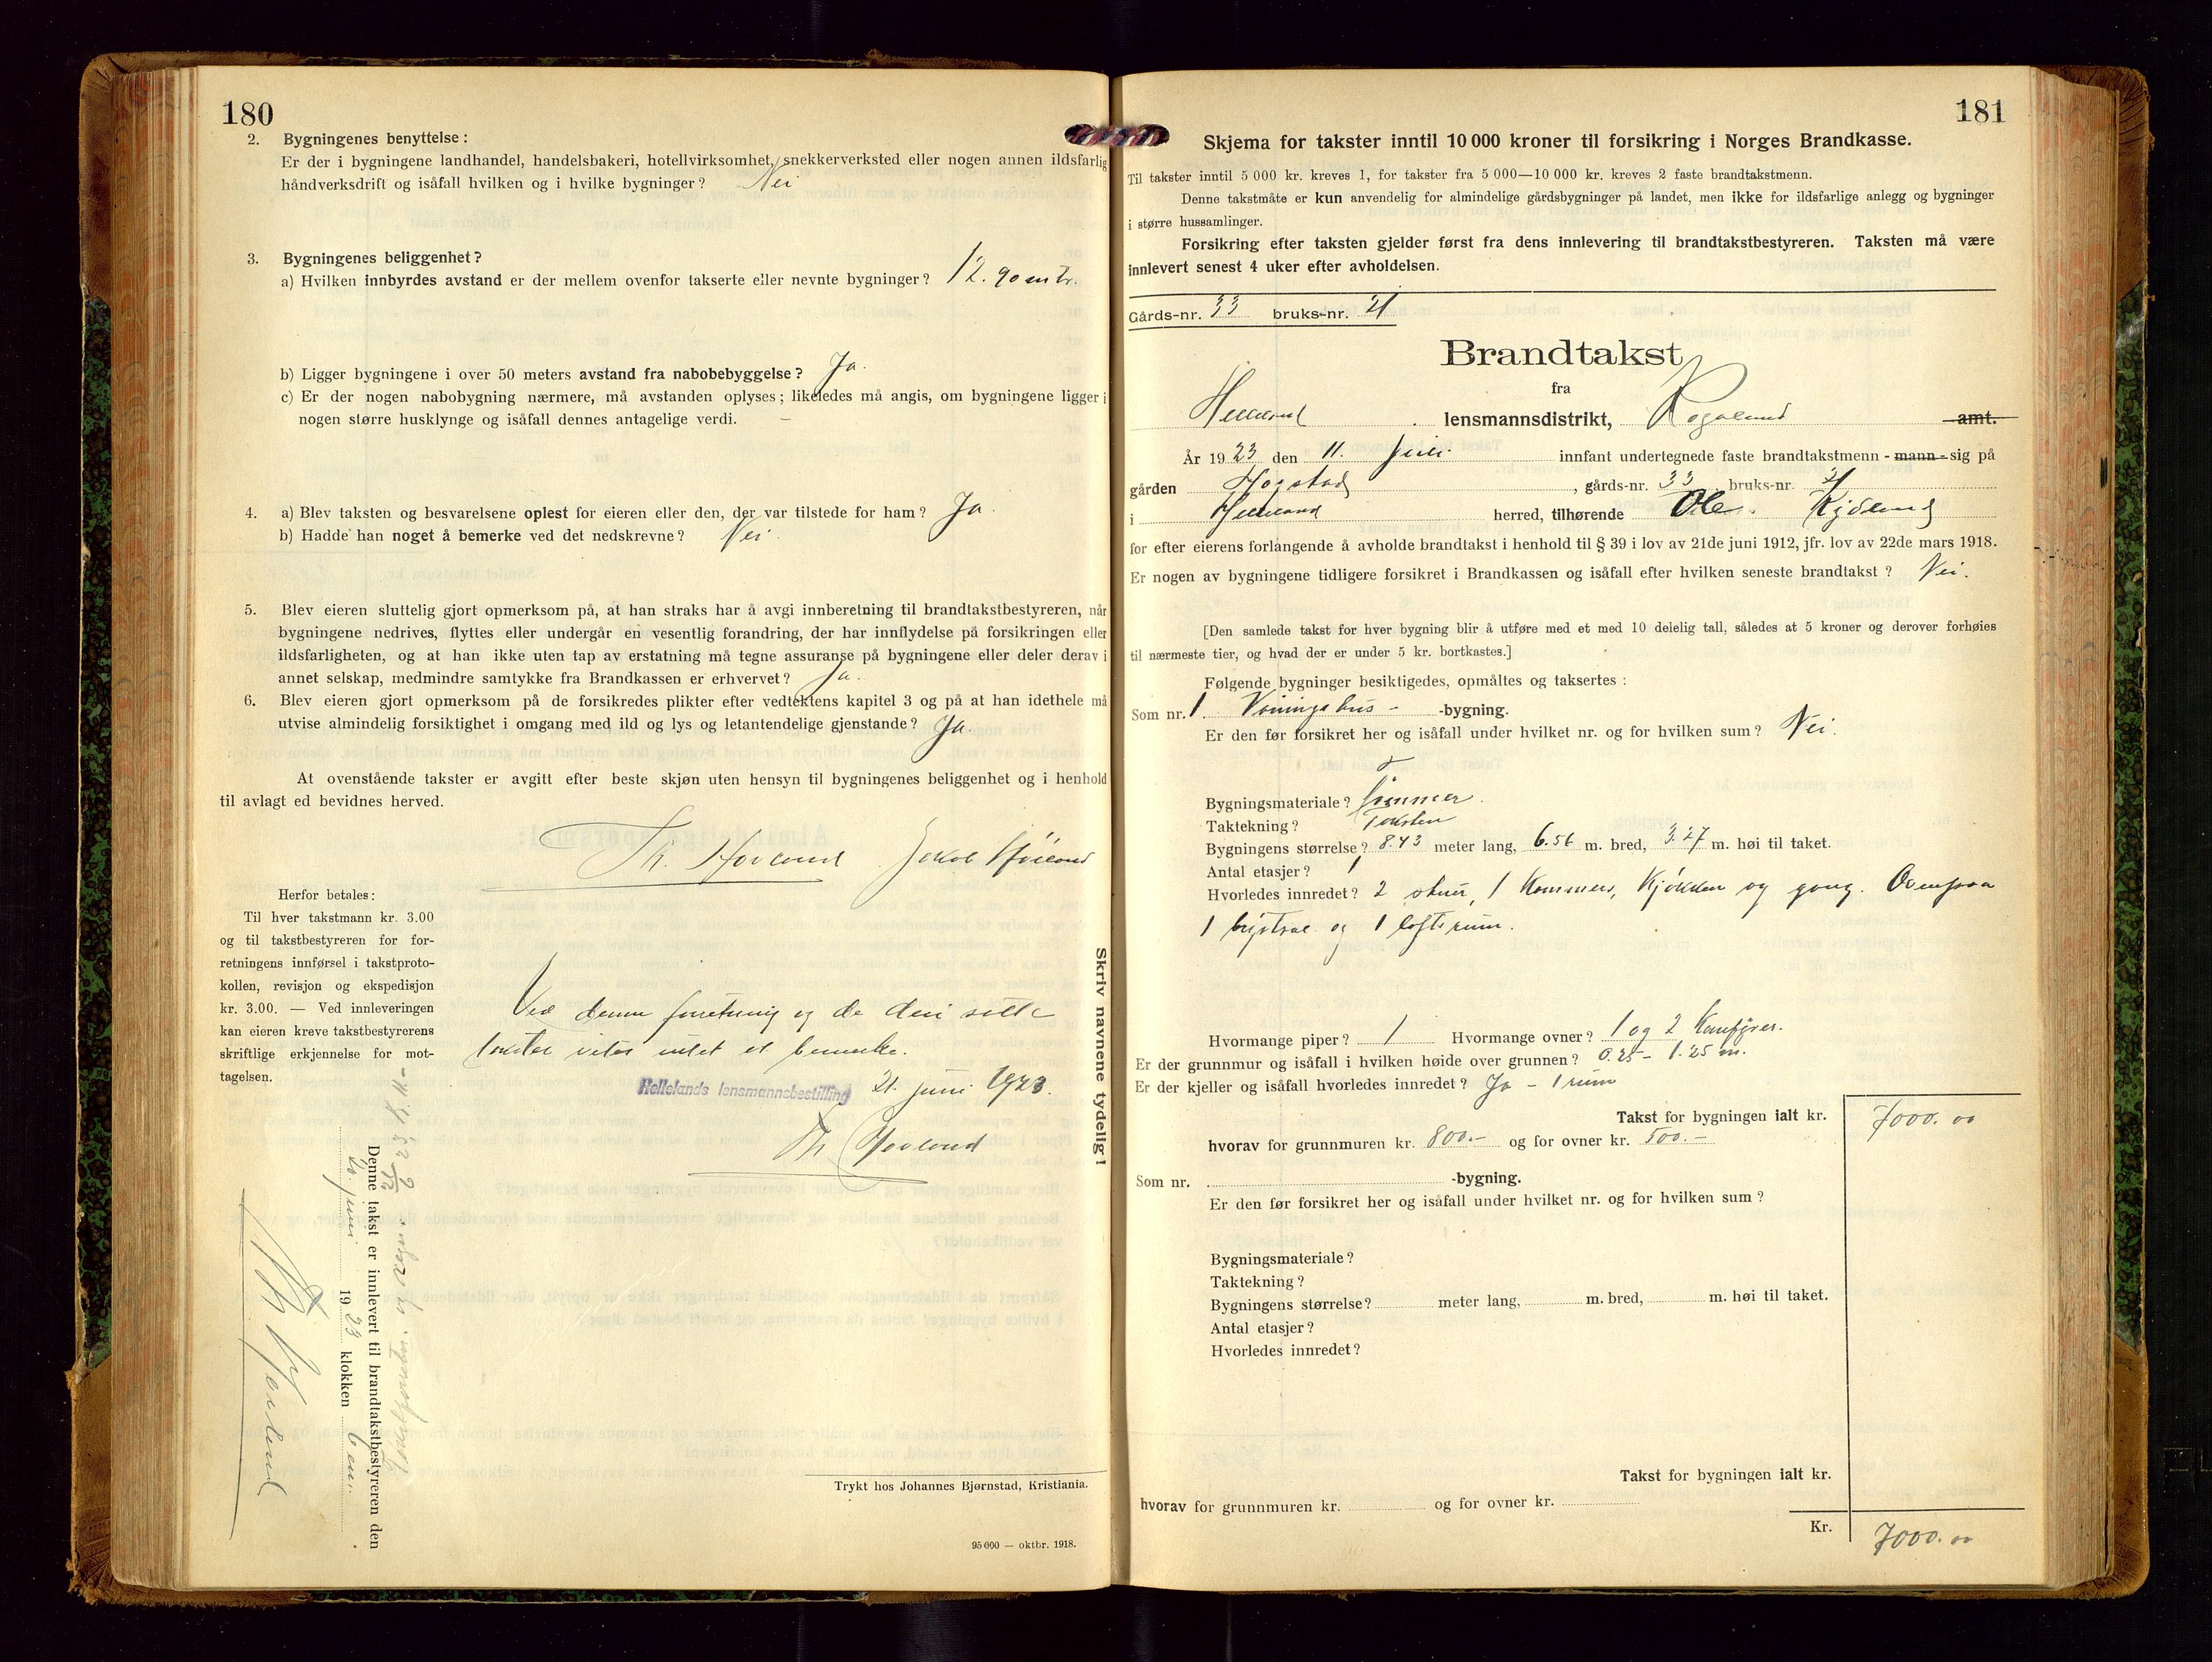 180
2. Bygningenes benyttelse:
Er der i bygningene landhandel, handelsbakeri, hotellvirksomhet, snekkerverksted eller nogen annen ildsfarlig
håndverksdrift og isåfall hvilken og i hvilke bygninger? Nei
3. Bygningenes beliggenhet?
a) Hvilken innbyrdes avstand er der mellem ovenfor takserte eller nevnte bygninger? 12.90 mtr.
b) Ligger bygningene i over 50 meters avstand fra nabobebyggelse? Ja.
c) Er der nogen nabobygning nærmere, må avstanden oplyses; likeledes må angis, om bygningene ligger i
nogen større husklynge og isåfall dennes antagelige verdi. –
4. a) Blev taksten og besvarelsene oplest for eieren eller den, der var tilstede for ham? Ja.
b) Hadde han noget å bemerke ved det nedskrevne? Nei.
5. Blev eieren sluttelig gjort opmerksom på, at han straks har å avgi innberetning til brandtakstbestyreren, når
bygningene nedrives, flyttes eller undergår en vesentlig forandring, der har innflydelse på forsikringen eller
ildsfarligheten, og at han ikke uten tap av erstatning må tegne assuranse på bygningene eller deler derav i
annet selskap, medmindre samtykke fra Brandkassen er erhvervet? Ja.
6. Blev eieren gjort opmerksom på de forsikredes plikter efter vedtektens kapitel 3 og på at han idethele må
utvise almindelig forsiktighet i omgang med ild og lys og letantendelige gjenstande? Ja.
At ovenstående takster er avgitt efter beste skjøn uten hensyn til bygningenes beliggenhet og i henhold
til avlagt ed bevidnes herved.
Th. Hovland Jakob
Herfor betales:
Til hver takstmann kr. 3.00
og til takstbestyreren for for-
retningens innførsel i takstproto-
kollen, revisjon og ekspedisjon
kr. 3.00. — Ved innleveringen
kan eieren kreve takstbestyrerens
skriftlige erkjennelse for mot-
tagelsen.
Ved denne forretning og de deri satte
takster vites intet at bemerke.
Hellelands lensmannsbestilling 21. juni 1923.
Th Hovland
Skriv navnene tydelig!
Denne takst er innlevert til brandtakstbestyreren den
20. juni 1923 klokken 6 em.
Th Hovland
Trykt hos Johannes Bjørnstad, Kristiania.
95 000 — oktbr. 1918.
181
Skjema for takster inntil 10 000 kroner til forsikring i Norges Brandkasse.
Til takster inntil 5 000 kr. kreves 1, for takster fra 5 000—10 000 kr. kreves 2 faste brandtakstmenn.
Denne takstmåte er kun anvendelig for almindelige gårdsbygninger på landet, men ikke for ildsfarlige anlegg og bygninger
i større hussamlinger.
Forsikring efter taksten gjelder først fra dens innlevering til brandtakstbestyreren. Taksten må være
innlevert senest 4 uker efter avholdelsen.
Gårds-nr. 33 bruks-nr. 21
Brandtakst
fra
Helleland lensmannsdistrikt, Rogaland amt.
År 1923 den 11. juni innfant undertegnede faste brandtakstmenn - mann - sig på
gården Hogstad, gårds-nr. 33 bruks-nr. 21
i Helleland herred, tilhørende Ole
for efter eierens forlangende å avholde brandtakst i henhold til § 39 i lov av 21de juni 1912, jfr. lov av 22de mars 1918.
Er nogen av bygningene tidligere forsikret i Brandkassen og isåfall efter hvilken seneste brandtakst? Nei.
[Den samlede takst for hver bygning blir å utføre med et med 10 delelig tall, således at 5 kroner og derover forhøies
til nærmeste tier, og hvad der er under 5 kr. bortkastes.]
Følgende bygninger besiktigedes, opmåltes og taksertes:
Som nr. 1 Våningshus - -bygning.
Er den før forsikret her og isåfall under hvilket nr. og for hvilken sum? Nei.
Bygningsmateriale? Tømmer.
Taktekning? Taksten
Bygningens størrelse? 8.43 meter lang, 6.56 m. bred, 3.27 m. høi til taket.
Antal etasjer? 1
Hvorledes innredet? 2 stuer, 1 Kammers, Kjøkken og gang. Ovenpaa
1 og 1 loftsrum.
Hvormange piper? 1 Hvormange ovner? 1 og 2 Komfyrer.
Er der grunnmur og isåfall i hvilken høide over grunnen? 0.25 - 1.25 m.
Er der kjeller og isåfall hvorledes innredet? Ja - 1 rum
Takst for bygningen ialt kr. 7000.00
hvorav for grunnmuren kr. 800.- og for ovner kr. 500.-
Som nr. -bygning.
Er den før forsikret her og isåfall under hvilket nr. og for hvilken sum?
Bygningsmateriale?
Taktekning?
Bygningens størrelse? meter lang, m. bred, m. høi til taket.
Antal etasjer?
Hvorledes innredet?
Takst for bygningen ialt kr.
hvorav for grunnmuren kr. og for ovner kr.
Kr. 7000.00